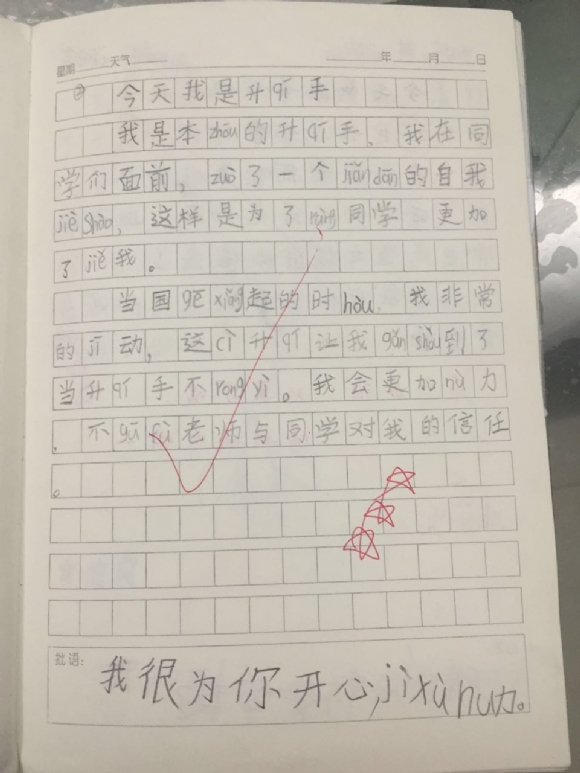 星期 天气 年 月 日
② 今天我是升qí手
我是本zhōu的升qí手，我在同
学们面前，zuò了一个jiǎn dān的自我
jiè shào，这样是为了ràng同学 更加
了jiě我。
当国gē xiǎng起的时hòu，我非常
的jī动，这cì升qí让我gǎn shòu到了
当升qí手不róng yì。我会更加nǔ力
，不gū fù老师与同学对我的信任
。
批语：
我很为你开心，jì xù nu力。